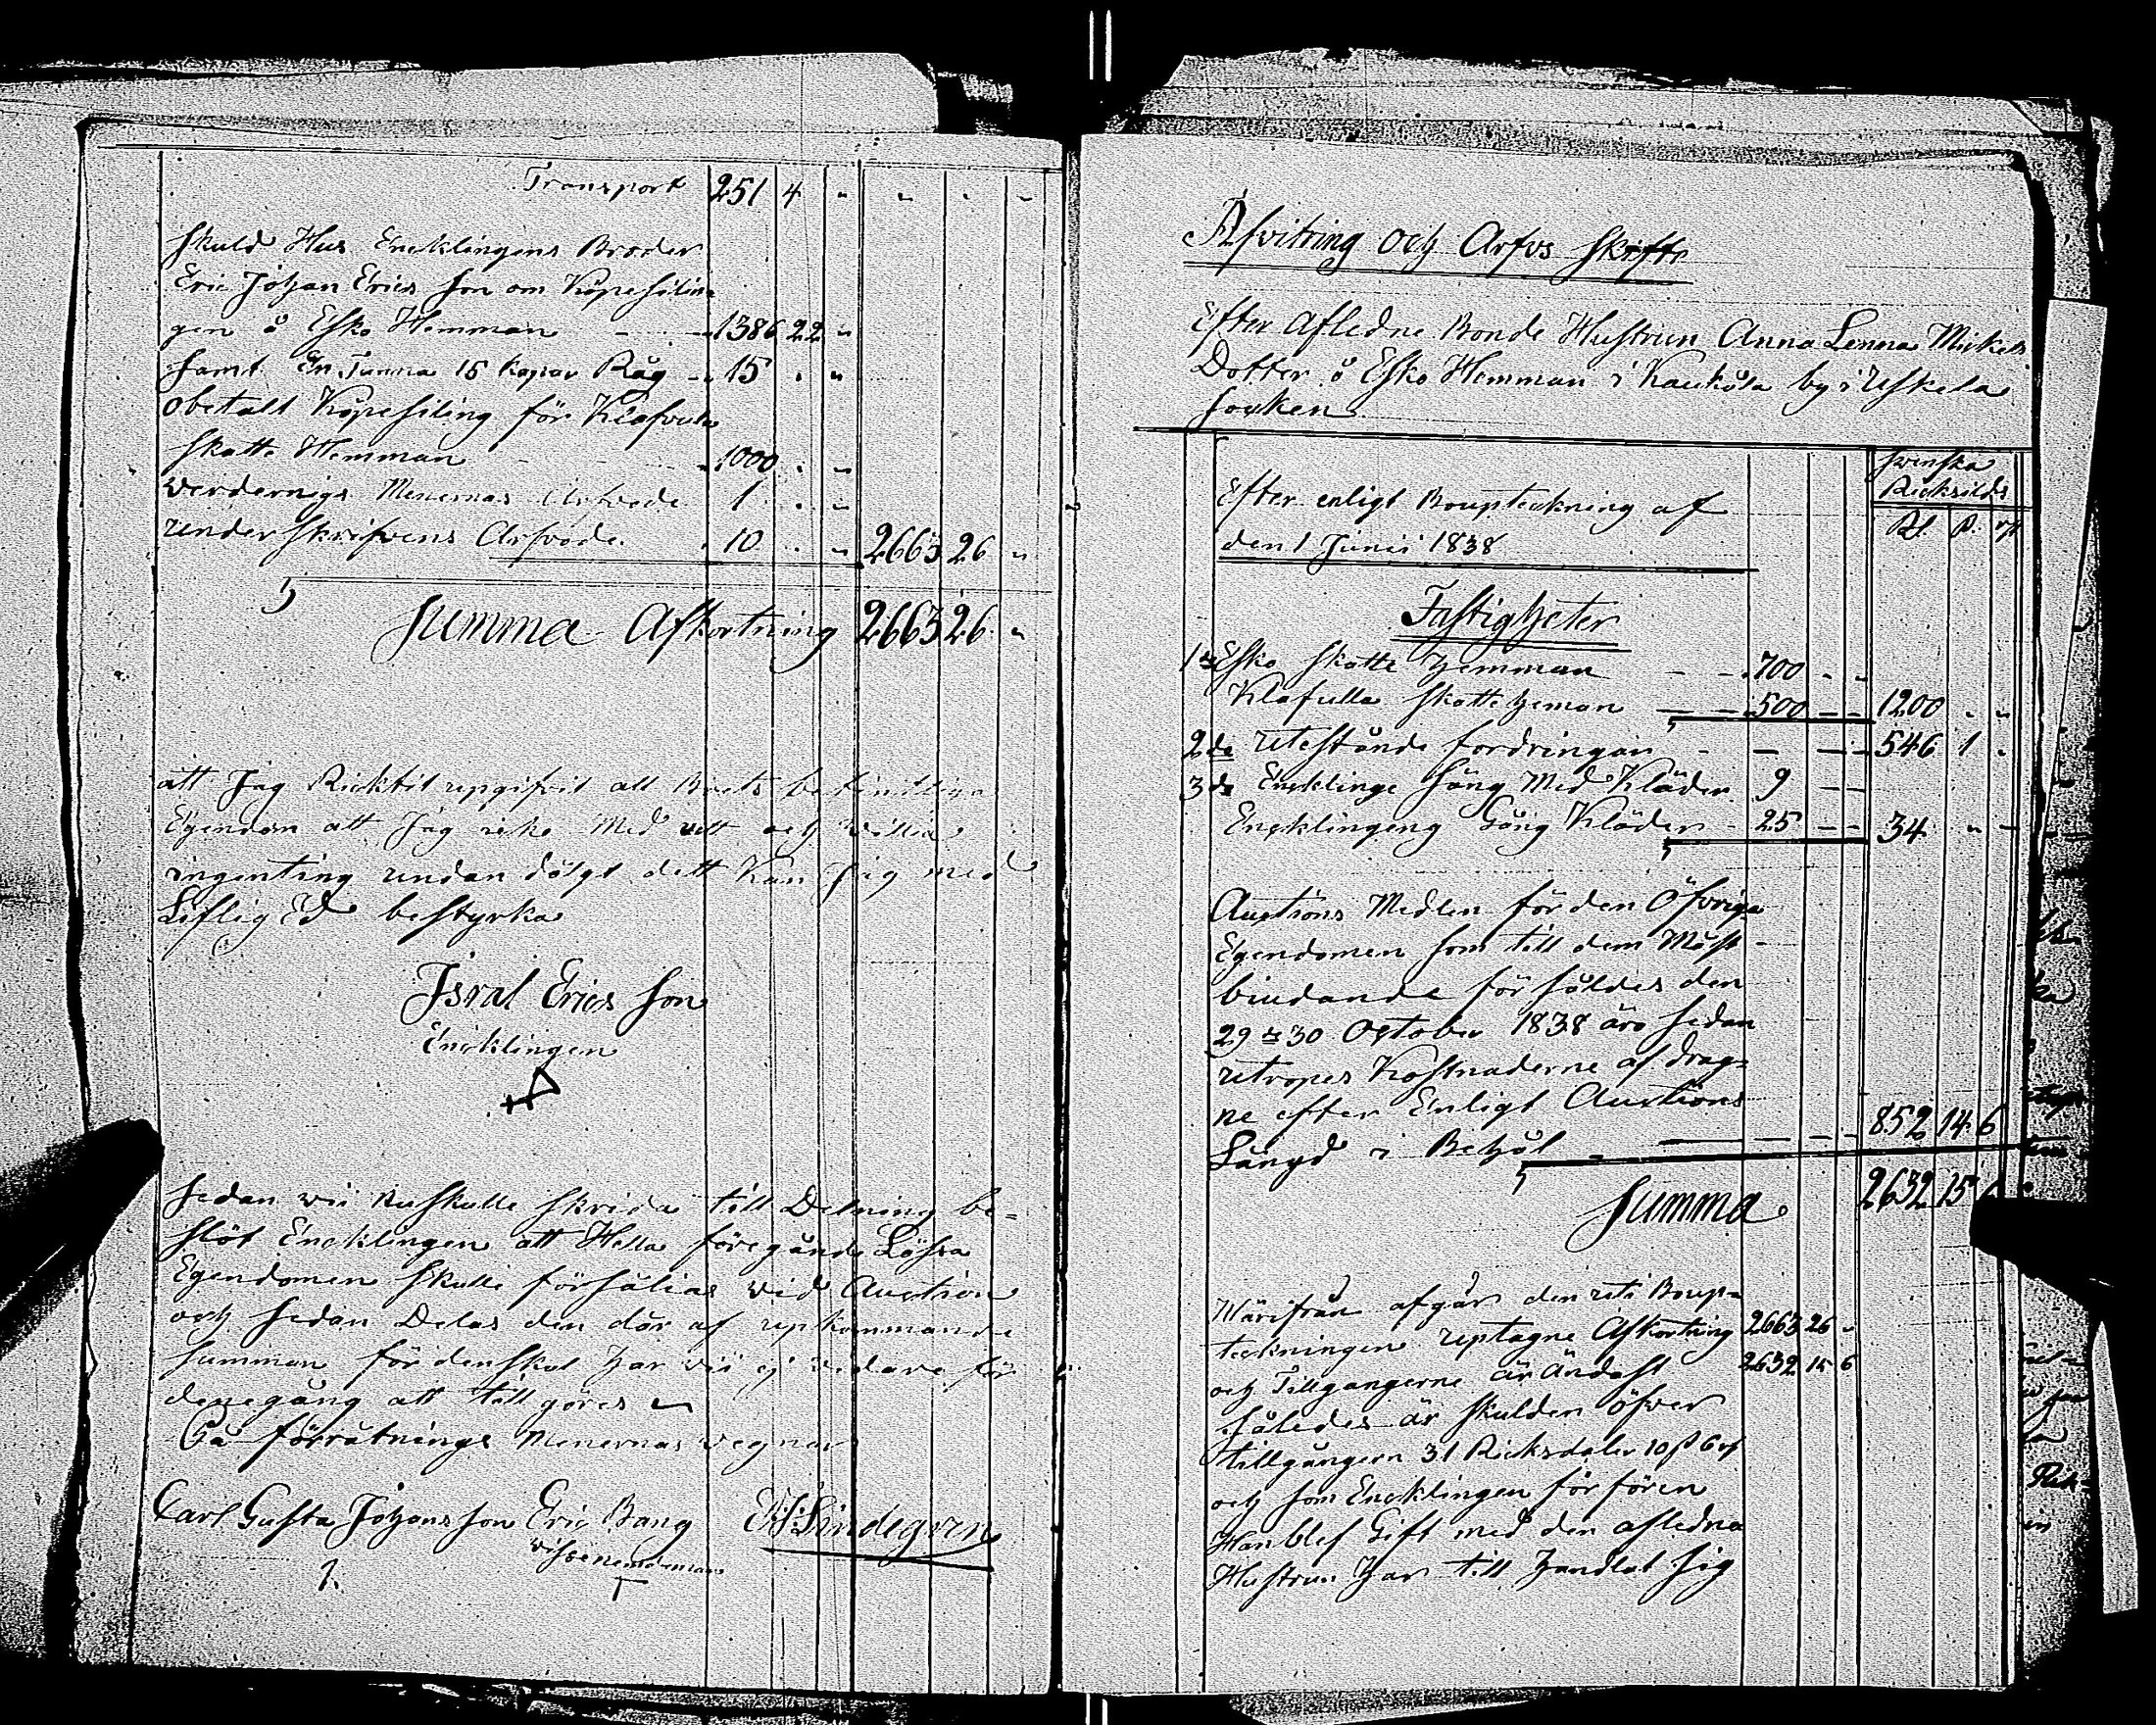 Transport 251 4 " " " "
Skuld Hus Encklingens Broder
Eric Johan Erics Son om Köpesilin
gen å Esko Hemman - - 1386 22 "
samt En Tunna 15 kapar Råg - 15 . "
obetalt Köpesiling för Klafvula
Skatte Hemman 1000 . "
Verdernigs Menernas Arfvode 1 . "
underskrifvens Arfvode. 10 . " 2663 26 "
Summa Afkortning 2663 26 "
att Jag Ricktit upgifvit alt Boets befintliga
Egendom att Jag icke Med vett och Villia
ingenting undan dölgt dett Kan Jag med
Liflig Ed bestyrka
Isral Erics Son
Encklingen
Sedan vii nu skulle skrida till Delning be=
slöt Encklingen att Hella föregånde Lössa
Egendomen skulle försälias vid Auction
och sedan Delas den där af upkommande
summan för den skul har vii ej vidare för
denegång att tillgöres
På förrätnings Menernas vegnar
Carl Gusta Johans Son Eric Bang E. J. Lindegren
Afvitring och Arfvs Skifte
Efter Afledne Bonde Hustrun Anna Lenna Mickels
Dotter å Esko Hemman i Kaukola by i Uskela
Socken
Svenska
Efter enligt Boupteckning af Ricksilds
den 1 Junii 1838 Rd. ß. rf
Fastigheter
1 Esko Skatte hemman - - 700 . "
Klafulla Skatte heman - - 500 - - 1200 . "
2de Utestånde fordringan - - - 546 1 .
3de Encklinge Säng Med Kläder 9 - -
Encklingeng Gång Kläder - 25 - - 34 " -
Auctions Medlen för den Öfvriga
Egendomen som till dem Mäst
biudande försåldes den
29 30 October 1838 äro sedan
utropes Kostnaderne afdrag=
ne efter Enligt Auctions
Längd i Behål - - - - 852 14 6
Summa 2632 15
Härifrån afgår den uti Boup=
teckningen uptagne Afkortning 2663 26 "
och Tillgangerne är Ändast 2632 15 6
således är skulden öfver
tillgångern 31 Ricksdaler 10 ß 6 rf
och som Encklingen för fören
Han blef Gift med den afledna
Hustrun har till handlat sig